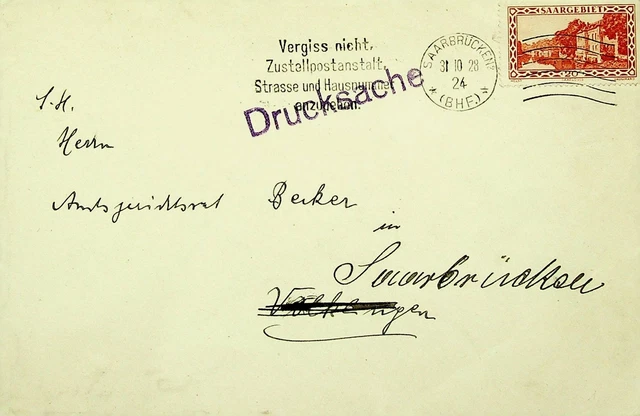 Vergiss nicht,
Zustellpostanstalt,
Strasse und Hausnummer
anzugeben.
Drucksache
SAARBRÜCKEN
31 10 28
24
* (BHF) *
SAARGEBIET
20
S. H.
Herrn
Amtsgerichtsrat Becker
in
Saarbrücken
Völklingen